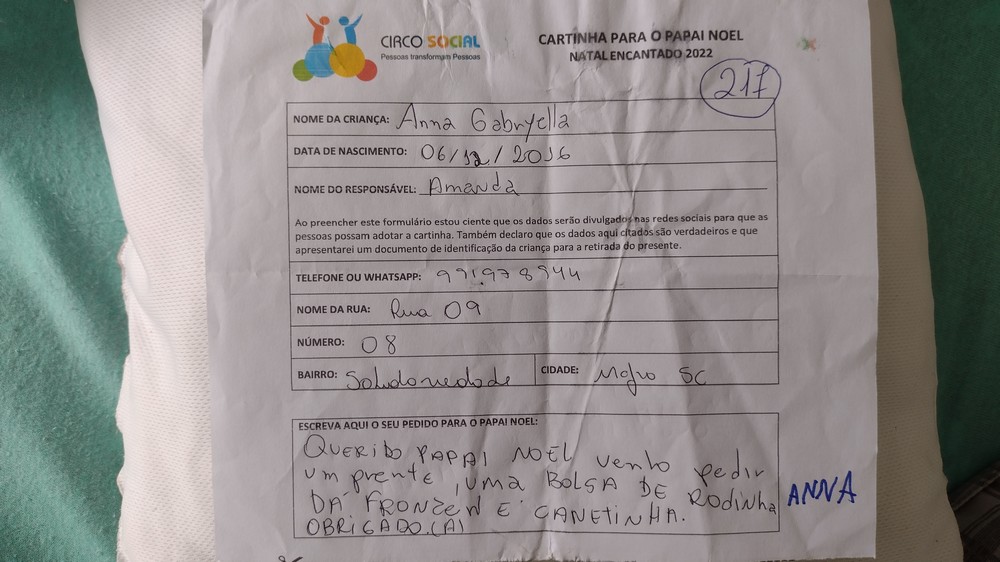 CIRCO SOCIAL
Pessoas transformam Pessoas
CARTINHA PARA O PAPAI NOEL
NATAL ENCANTADO 2022
217
NOME DA CRIANÇA: Anna Gabryella
DATA DE NASCIMENTO: 06/12/2016
NOME DO RESPONSÁVEL: Amanda
Ao preencher este formulário estou ciente que os dados serão divulgados nas redes sociais para que as
pessoas possam adotar a cartinha. Também declaro que os dados aqui citados são verdadeiros e que
apresentarei um documento de identificação da criança para a retirada do presente.
TELEFONE OU WHATSAPP: 991978944
NOME DA RUA: Rua 09
NÚMERO: 08
BAIRRO: CIDADE: SC
ESCREVA AQUI O SEU PEDIDO PARA O PAPAI NOEL:
QUERIDO PAPAI NOEL venho pedir
um prente, UMA BOLSA DE Rodinha
DA FRONZEN E CANETINHA.
OBRIGADO.(A)
ANNA